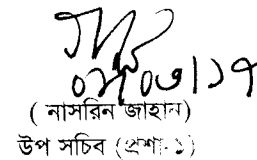 ০৭/০৩/১৭
( নাসরিন জাহান)
উপ সচিব (প্রশা-১)